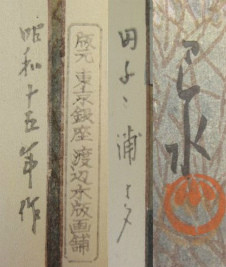 昭和十五年作
版元 東京銀座 渡辺木版画舗
田子ノ浦ノ夕
巴水